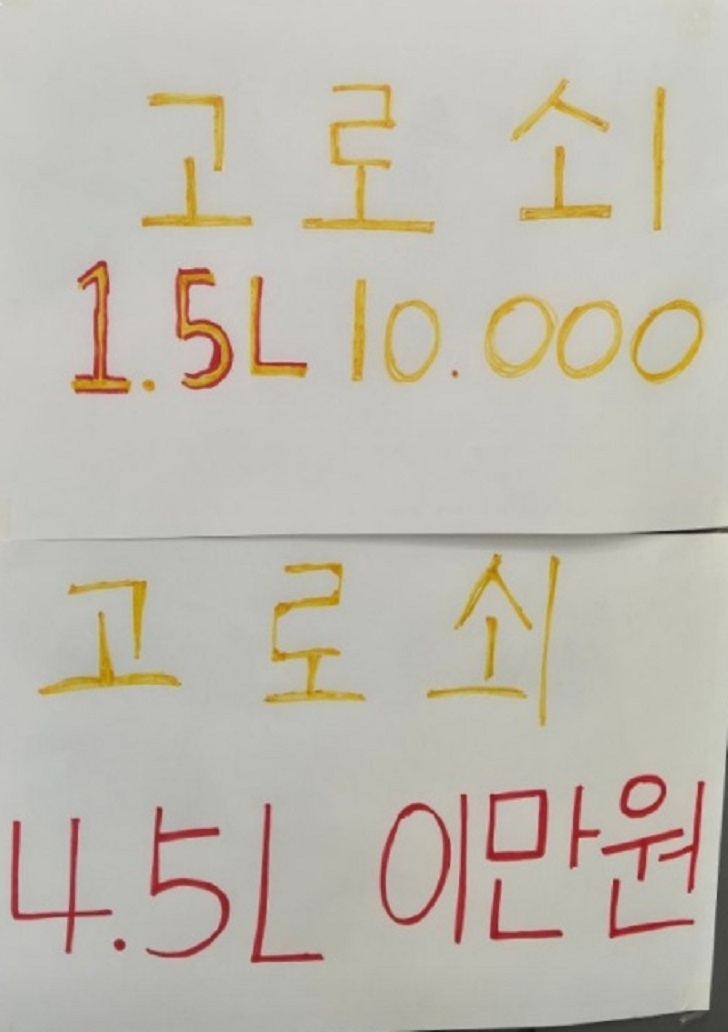 고로쇠
1.5L 10.000
고로쇠
4.5L 이만원